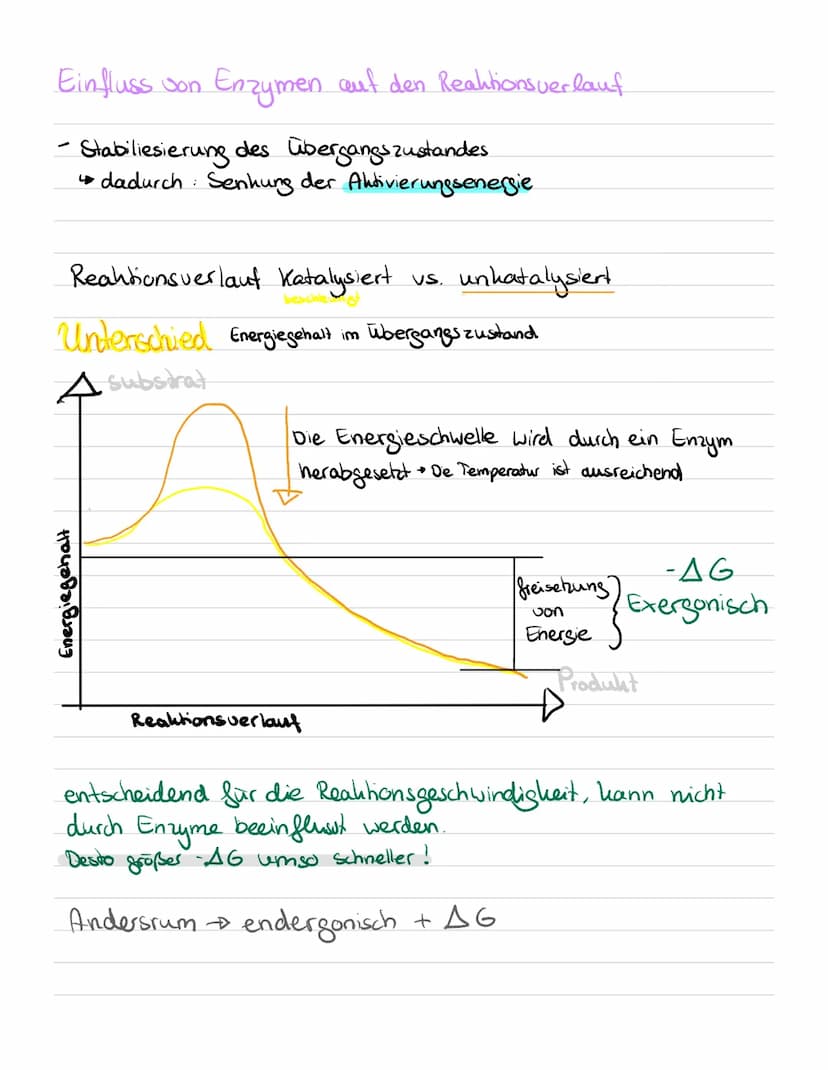 Einfluss von Enzymen auf den Reaktionsverlauf
- Stabiliesierung des Übergangszustandes
↳ dadurch : Senkung der Aktivierungsenergie
Reaktionsverlauf Katalysiert vs. unkatalysiert
beschleunigt
Unterschied Energiegehalt im Übergangszustand
Substrat
Die Energieschwelle wird durch ein Enzym
herabgesetzt → De Temperatur ist ausreichend
Energiegehalt
freisetzung
von
Energie
- ΔG
Exergonisch
Produkt
Reaktionsverlauf
entscheidend für die Reaktionsgeschwindigkeit, kann nicht
durch Enzyme beeinflusst werden.
Desto größer -ΔG umso schneller!
Andersrum → endergonisch + ΔG